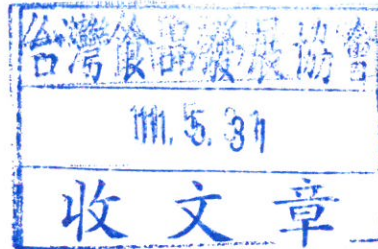 台灣食品發展協會
111. 5. 31
收文章